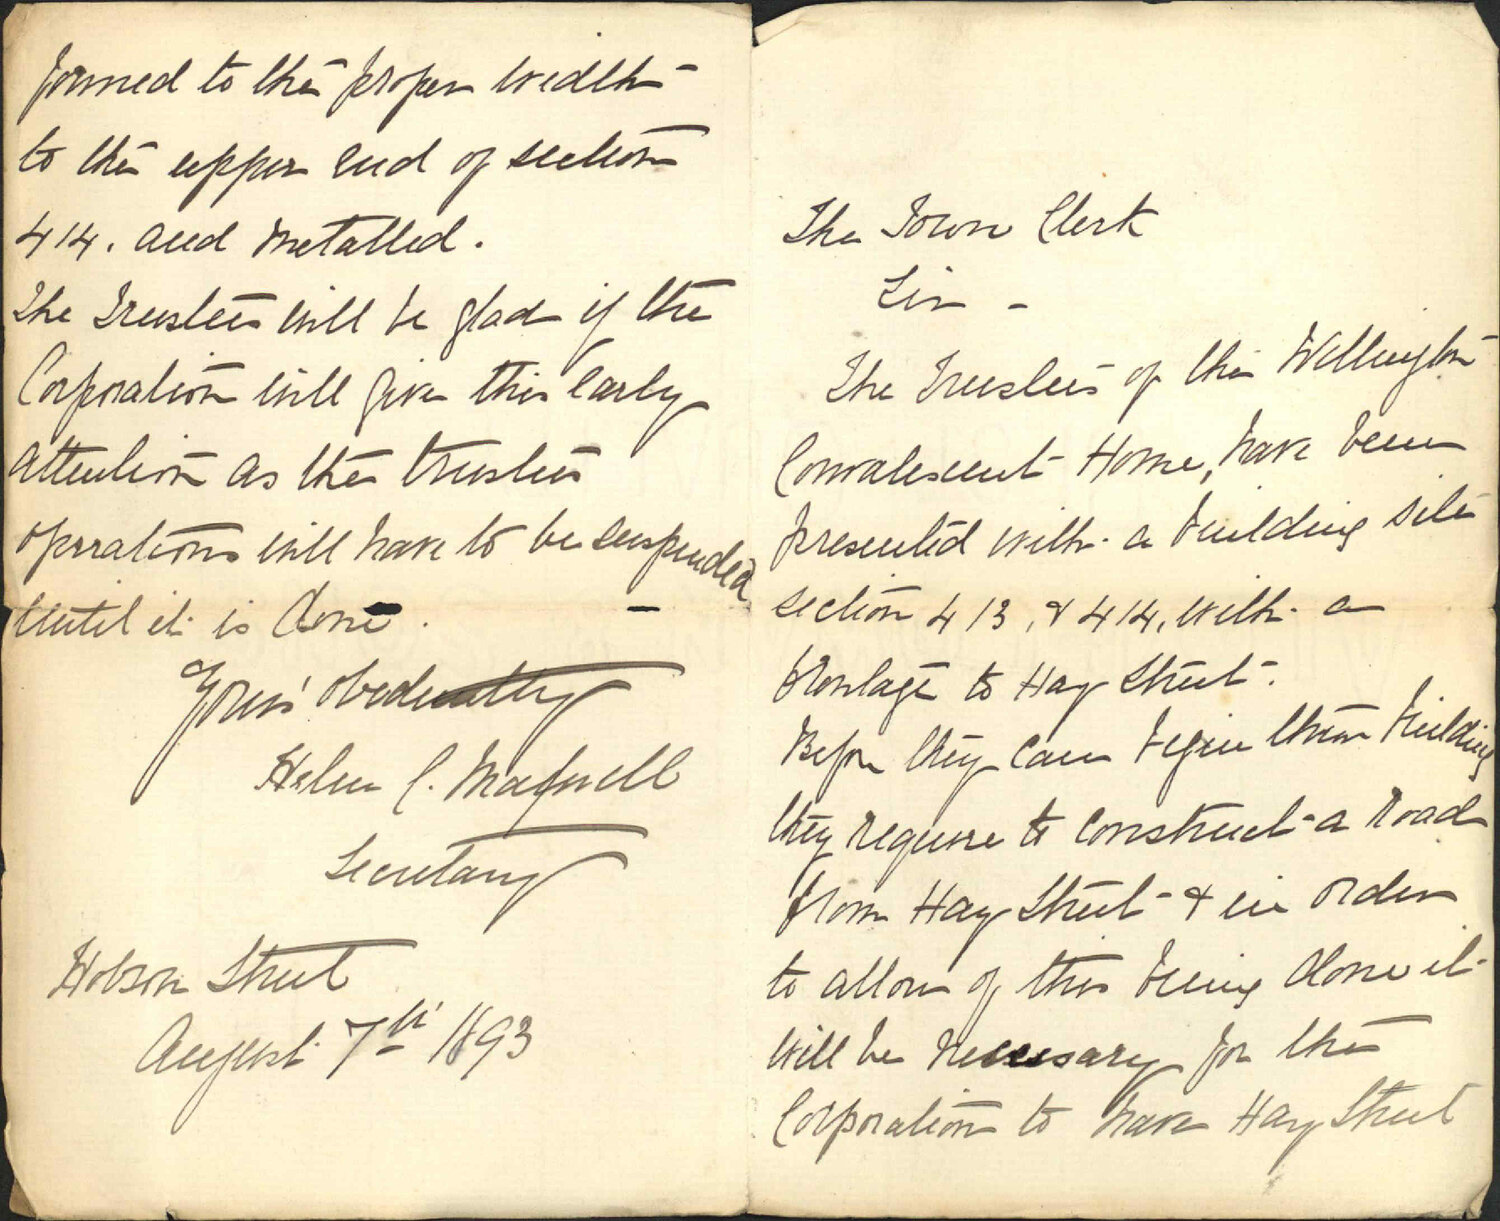 The Town Clerk
Sir -
The Trustees of the Wellington
Convalescent Home, have been
presented with a building site
section 413, & 414, with a
frontage to Hay Street.
Before they can begin their building
they require to construct a road
from Hay Street & in order
to allow of this being done it
will be necessary for the
Corporation to have Hay Street
formed to the proper width
to the upper end of section
414. and metalled.
The Trustees will be glad if the
Corporation will give this early
attention as the trustees
operations will have to be suspended
until it is done. -
Yours obediently
Helen C. Maxwell
Secretary
Hobson Street
August 7th 1893